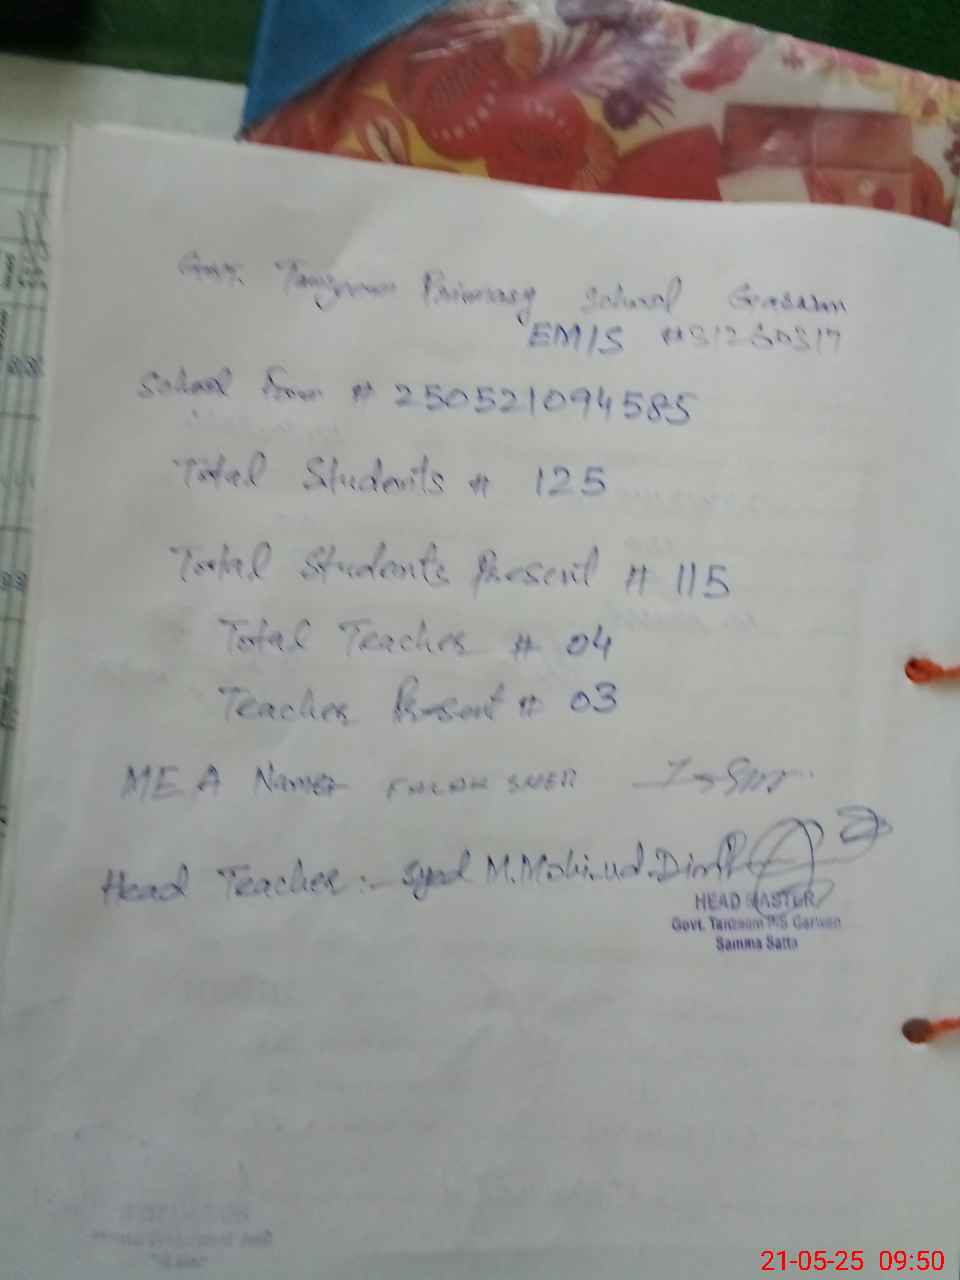 Govt. Tanzeem Primary School Garwan
EMIS # 31230317
School Form # 250521094585
Total Students # 125
Total Students Present # 115
Total Teacher # 04
Teacher Present # 03
MEA Name
Head Teacher:- Syed M.Mohi.ud.Din
HEAD MASTER
Govt. Tanzeem P/S Garwan
Samma Satta
21-05-25 09:50